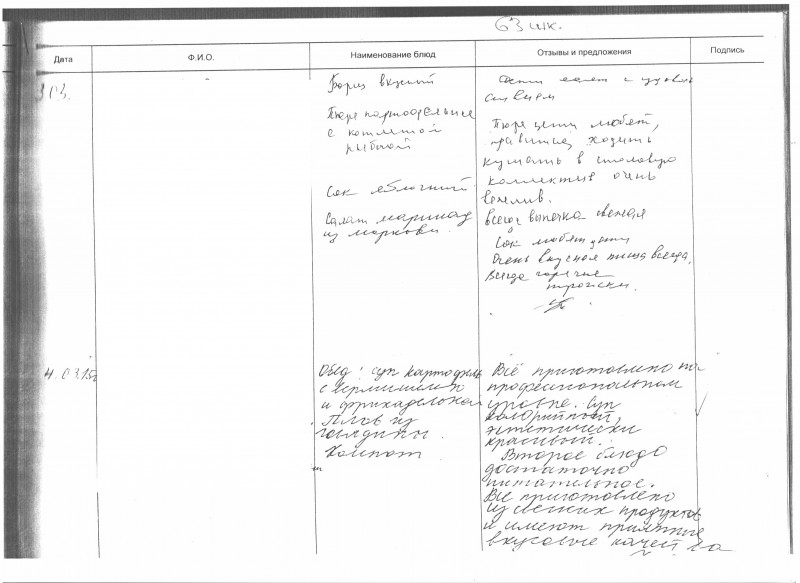 63 шк.
Дата Ф.И.О. Наименование блюд Отзывы и предложения Подпись
Борщ вкусный
Пюре картофельное
с котлетой
рыбной
Сок яблочный
Салат маринад
из моркови.
Пюре дети любят,
нравится ходить
кушать в столовую
коллектив очень
вежлив.
всегда выпечка свежая
Сок любят дети
Очень вкусная пища всегда,
Всегда горячие
4.03.15г
Обед: суп картофель
с вермишелью
и фрикадельками
Плов из
говядины.
Компот
Всё приготовлено на
профессиональном
уровне. Суп
калорийный,
эстетически
красивый.
Второе блюдо
достаточно
питательное.
Всё приготовлено
из свежих продуктов
и имеют приятные
вкусовые качества